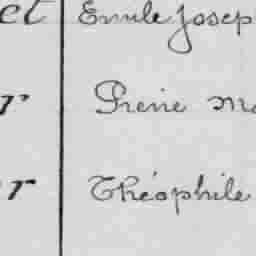 et Emile Josep
r Irène Ma
r Théophile